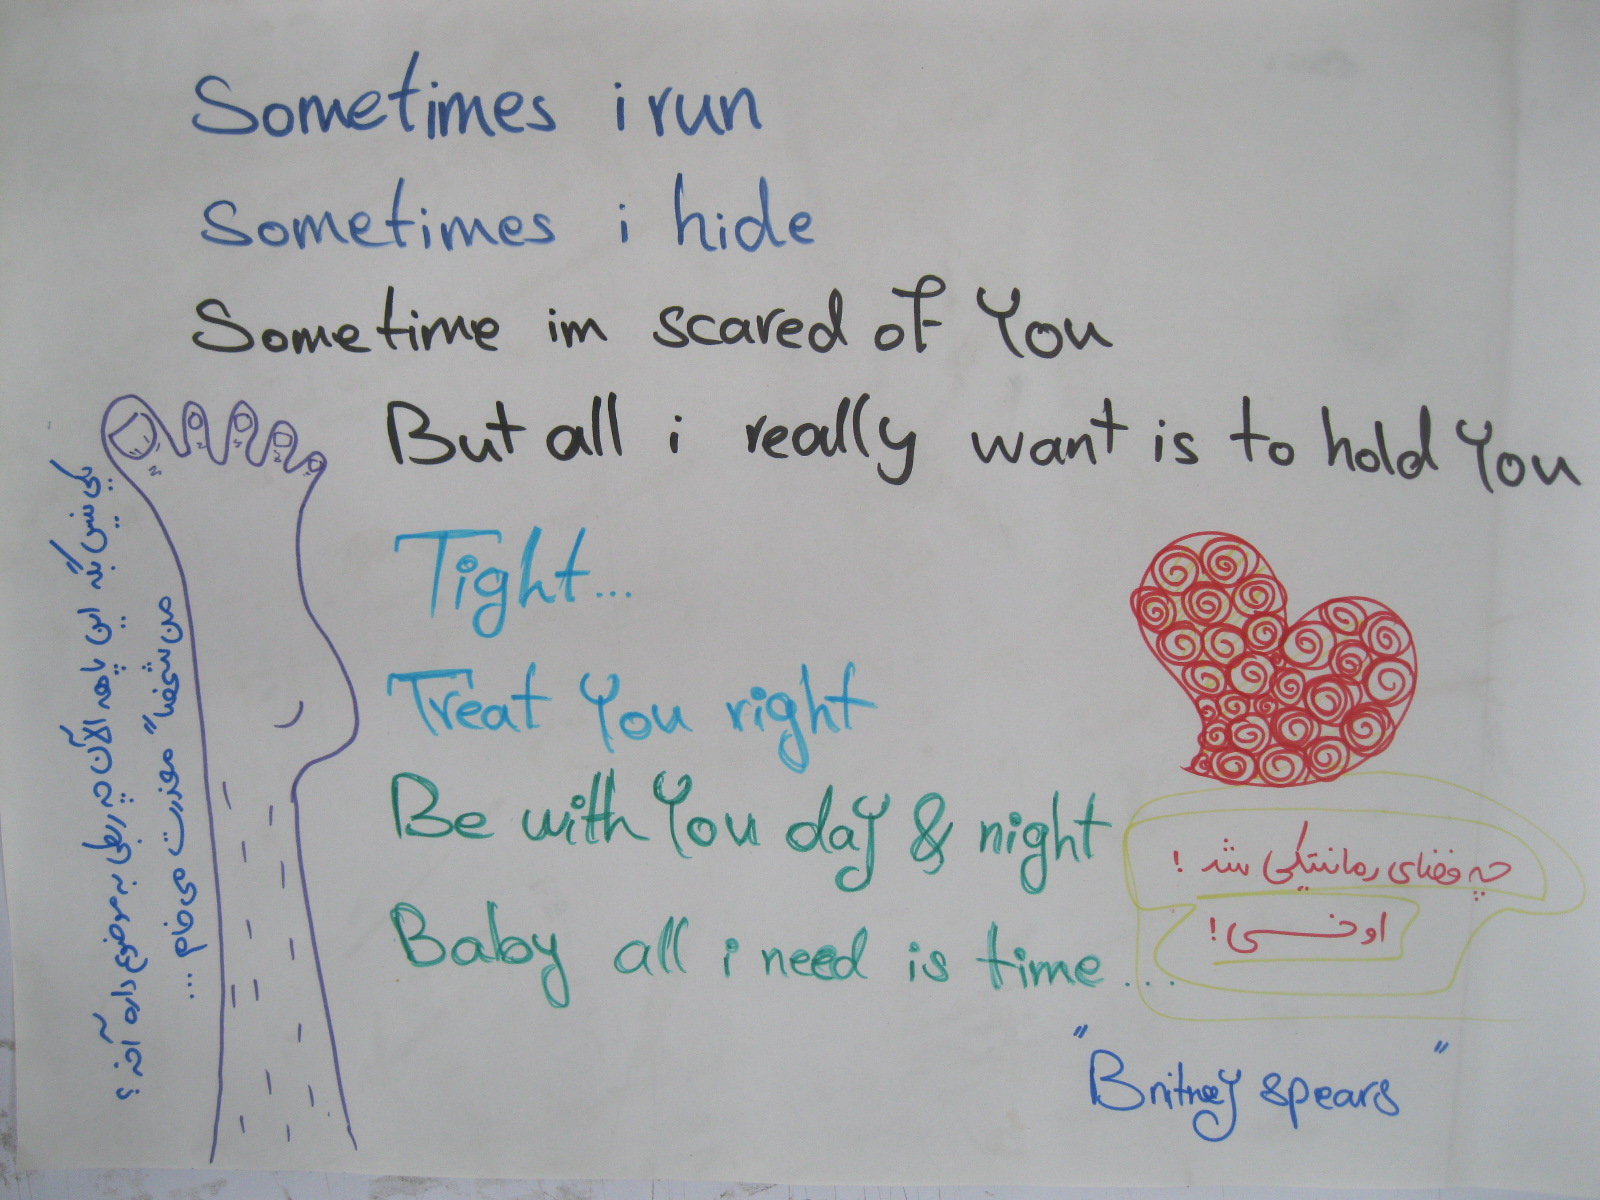 Sometimes i run
Sometimes i hide
Sometime im scared of You
But all i really want is to hold You
Tight...
Treat You right
Be with You day & night
Baby all i need is time...
"Britney spears"
چه فضای رمانتیکی شد!
اوخـــی!
یکی نیس بگه این پاهه الآن چه ربطی به موضوع داره آخه؟
من شخصاً معذرت می خام ...